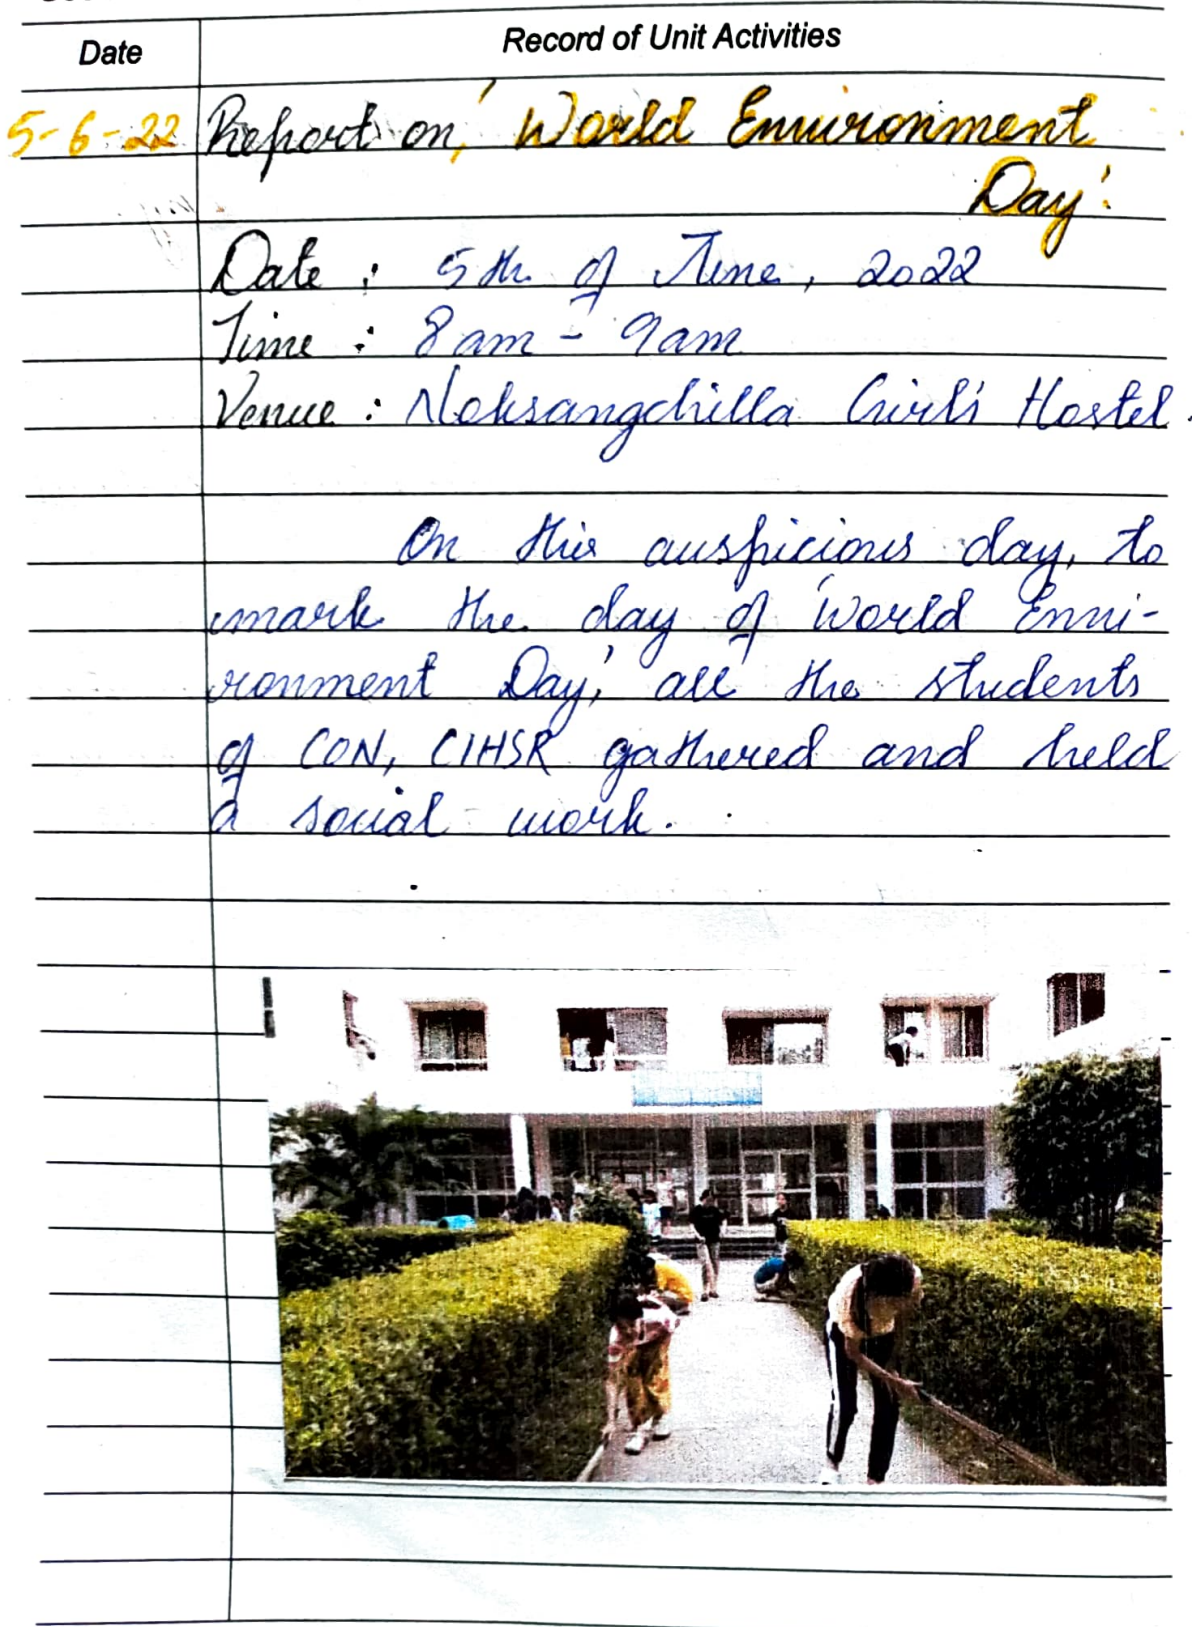 Date
Record of Unit Activities
5-6-22 Report on, 'World Environment
Day'.
Date : 5th of June, 2022
Time : 8am - 9am
Venue : Noksangchilla Girl's Hostel.
On this auspicious day, to
mark the day of 'World Envi-
ronment Day', all the students
of CON, CIHSR gathered and held
a social work.